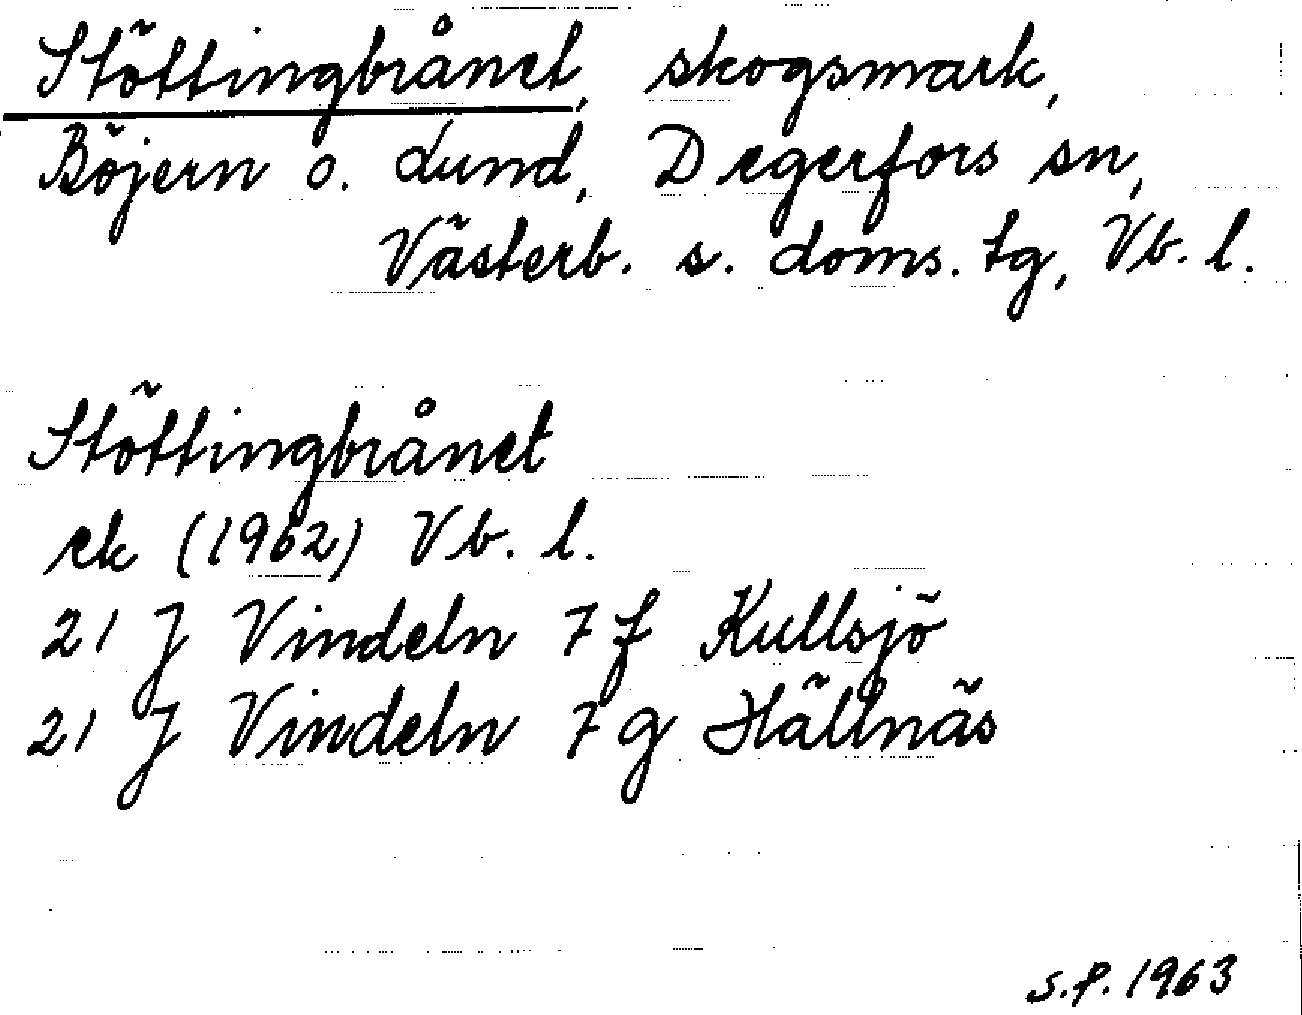 Stöttingbrånet, skogsmark,
Böjern o. Lund, Degerfors sn,
Västerb. s. doms. tg, Vb. l.
Stöttingbrånet
ek (1962) Vb. l.
21 J Vindeln 7 f Kullsjö
21 J Vindeln 7 g Hällnäs
S.P. 1963